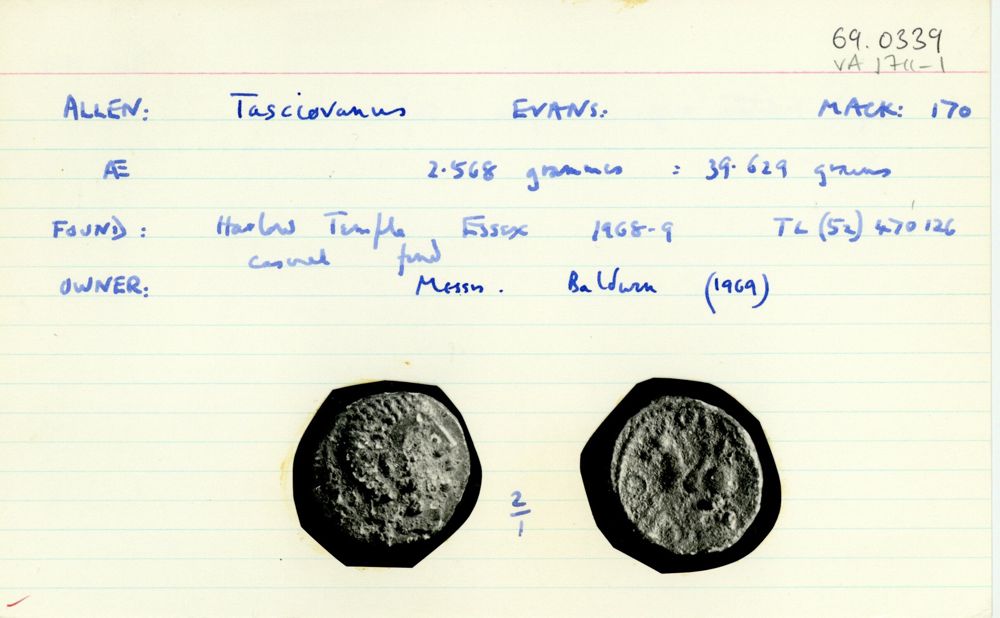 69.0339
VA 1711-1
ALLEN: Tasciovanus EVANS: MACK: 170
Æ 2.568 grammes = 39.629 grains
FOUND: Harlow Temple Essex 1968-9 TL (52) 470126
casual find
OWNER: Messrs. Baldwin (1969)
2
1